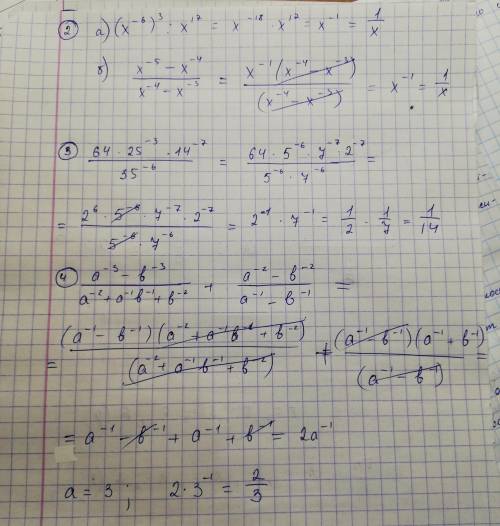 ② а) (x⁻⁶)³ · x¹⁷ = x⁻¹⁸ · x¹⁷ = x⁻¹ = 1/x
в) (x⁻⁵ − x⁻⁴)/(x⁻⁴ − x⁻³) = x⁻¹(x⁻⁴ − x⁻³)/(x⁻⁴ − x⁻³) = x⁻¹ = 1/x
③ (64 · 25⁻³ · 14⁻⁷)/35⁻⁶ = (64 · 5⁻⁶ · 7⁻⁷ · 2⁻⁷)/(5⁻⁶ · 7⁻⁶) =
= (2⁶ · 5⁻⁶ · 7⁻⁷ · 2⁻⁷)/(5⁻⁶ · 7⁻⁶) = 2⁻¹ · 7⁻¹ = 1/2 · 1/7 = 1/14
④ (a⁻³ − в⁻³)/(a⁻² + a⁻¹в⁻¹ + в⁻²) + (a⁻² − в⁻²)/(a⁻¹ − в⁻¹) =
= (a⁻¹ − в⁻¹)(a⁻² + a⁻¹в⁻¹ + в⁻²)/(a⁻² + a⁻¹в⁻¹ + в⁻²) + (a⁻¹ − в⁻¹)(a⁻¹ + в⁻¹)/(a⁻¹ − в⁻¹) =
= a⁻¹ − в⁻¹ + a⁻¹ + в⁻¹ = 2a⁻¹
a = 3 ; 2·3⁻¹ = 2/3